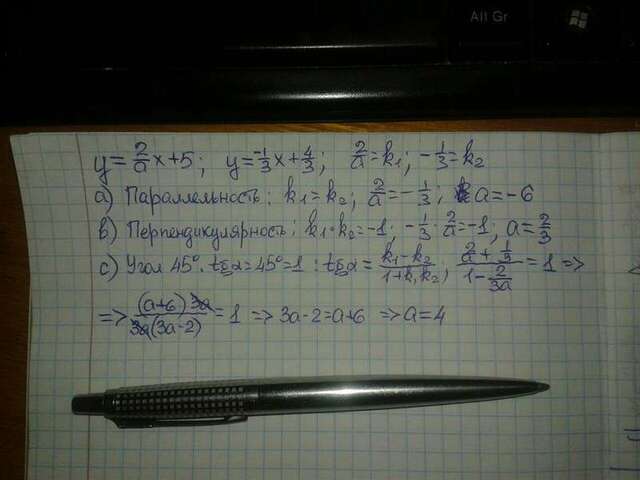 All Gr
y = 2/a x + 5; y = -1/3 x + 4/3; 2/a = k₁; -1/3 = k₂
a) Параллельность: k₁ = k₂; 2/a = -1/3; a = -6
b) Перпендикулярность; k₁·k₂ = -1; -1/3 · 2/a = -1; a = 2/3
c) Угол 45°. tgα = 45° = 1 : tgα = (k₁ - k₂)/(1 + k₁k₂), (2/a + 1/3)/(1 - 2/3a) = 1 =>
=> (a+6) 3a / 3a (3a-2) = 1 => 3a - 2 = a + 6 => a = 4